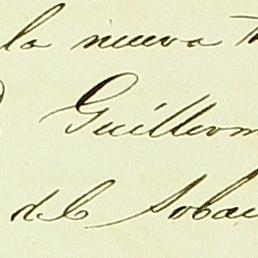 la nueva
Guillerm
del Sobau